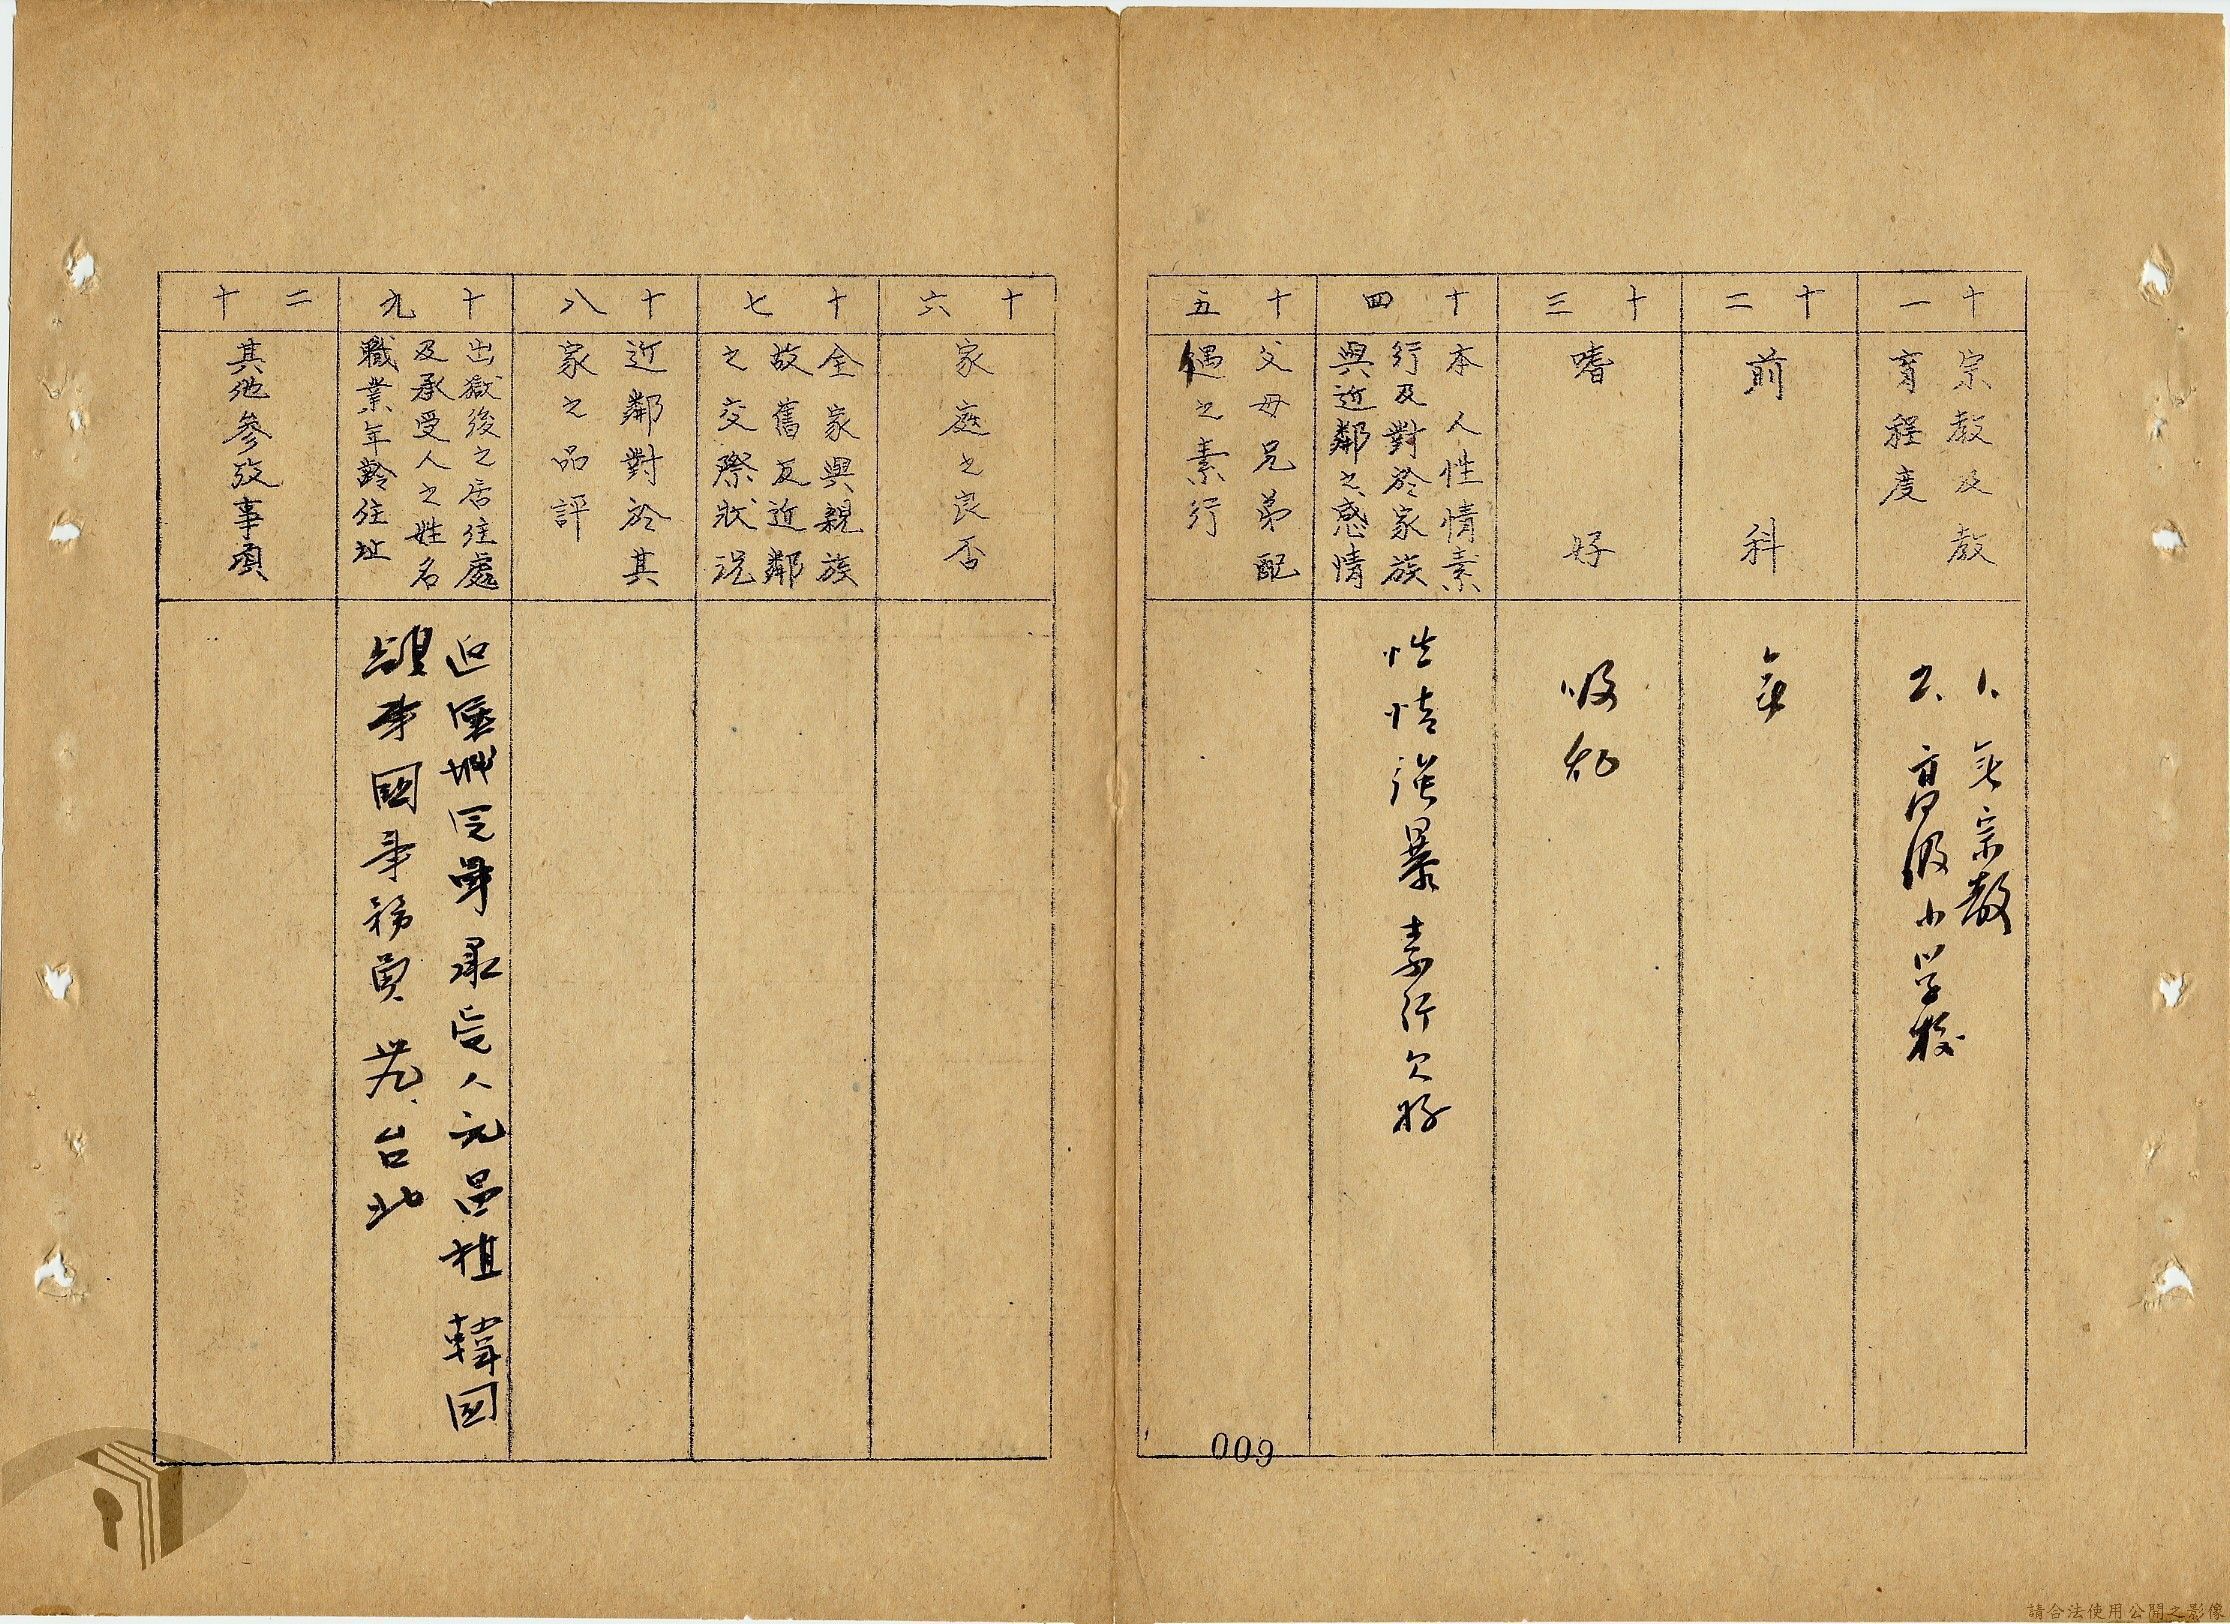 十一
宗教及教
育程度
1、無宗教
2、高級小学校
十二
前科
無
十三
嗜好
吸烟
十四
本人性情素
行及對於家族
與近鄰之感情
性情强暴素行欠好
十五
父母兄弟配
偶之素行
十六
家庭之良否
十七
全家與親族
故舊及近鄰
之交際狀況
十八
近鄰對於其
家之品評
十九
出獄後之居住處
及承受人之姓名
職業年齡住址
承受人元昌植 韓國
領事國事務員 卅九、台北
二十
其他參攷事項
009
請合法使用公開之影像